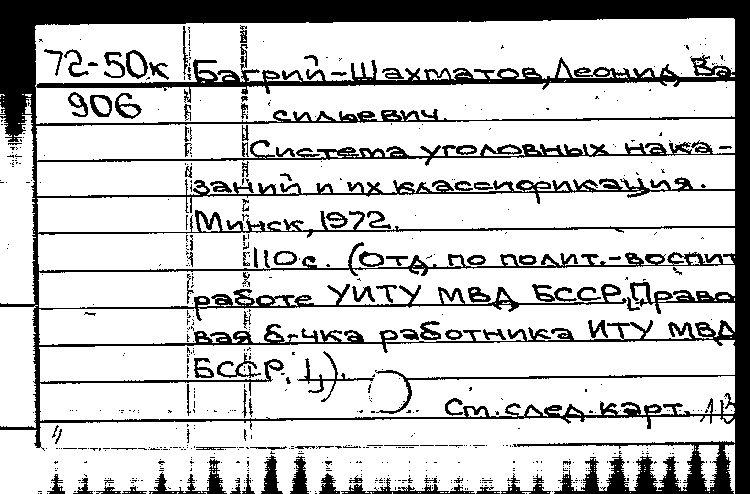 72-50к Багрий-Шахматов, Леонид Ва-
906 сильевич.
Система уголовных нака-
заний и их классификация.
Минск, 1972.
110с. (Отд. по полит.-воспит
работе УИТУ МВД БССР, Право
вая б-чка работника ИТУ МВД
БССР,
См. след. карт.